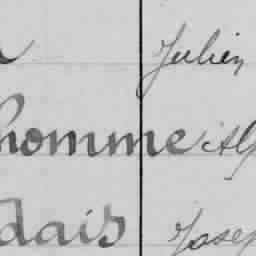 Julien
homme Alp
dais Josep